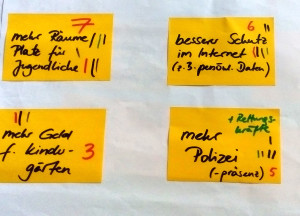 7
mehr Räume/
Plätze für
Jugendliche
6
besserer Schutz
im Internet
(z.B. persönl. Daten)
mehr Geld
f. Kinder-
gärten
3
+ Rettungs-
kräfte
mehr
Polizei
(-präsenz) 5